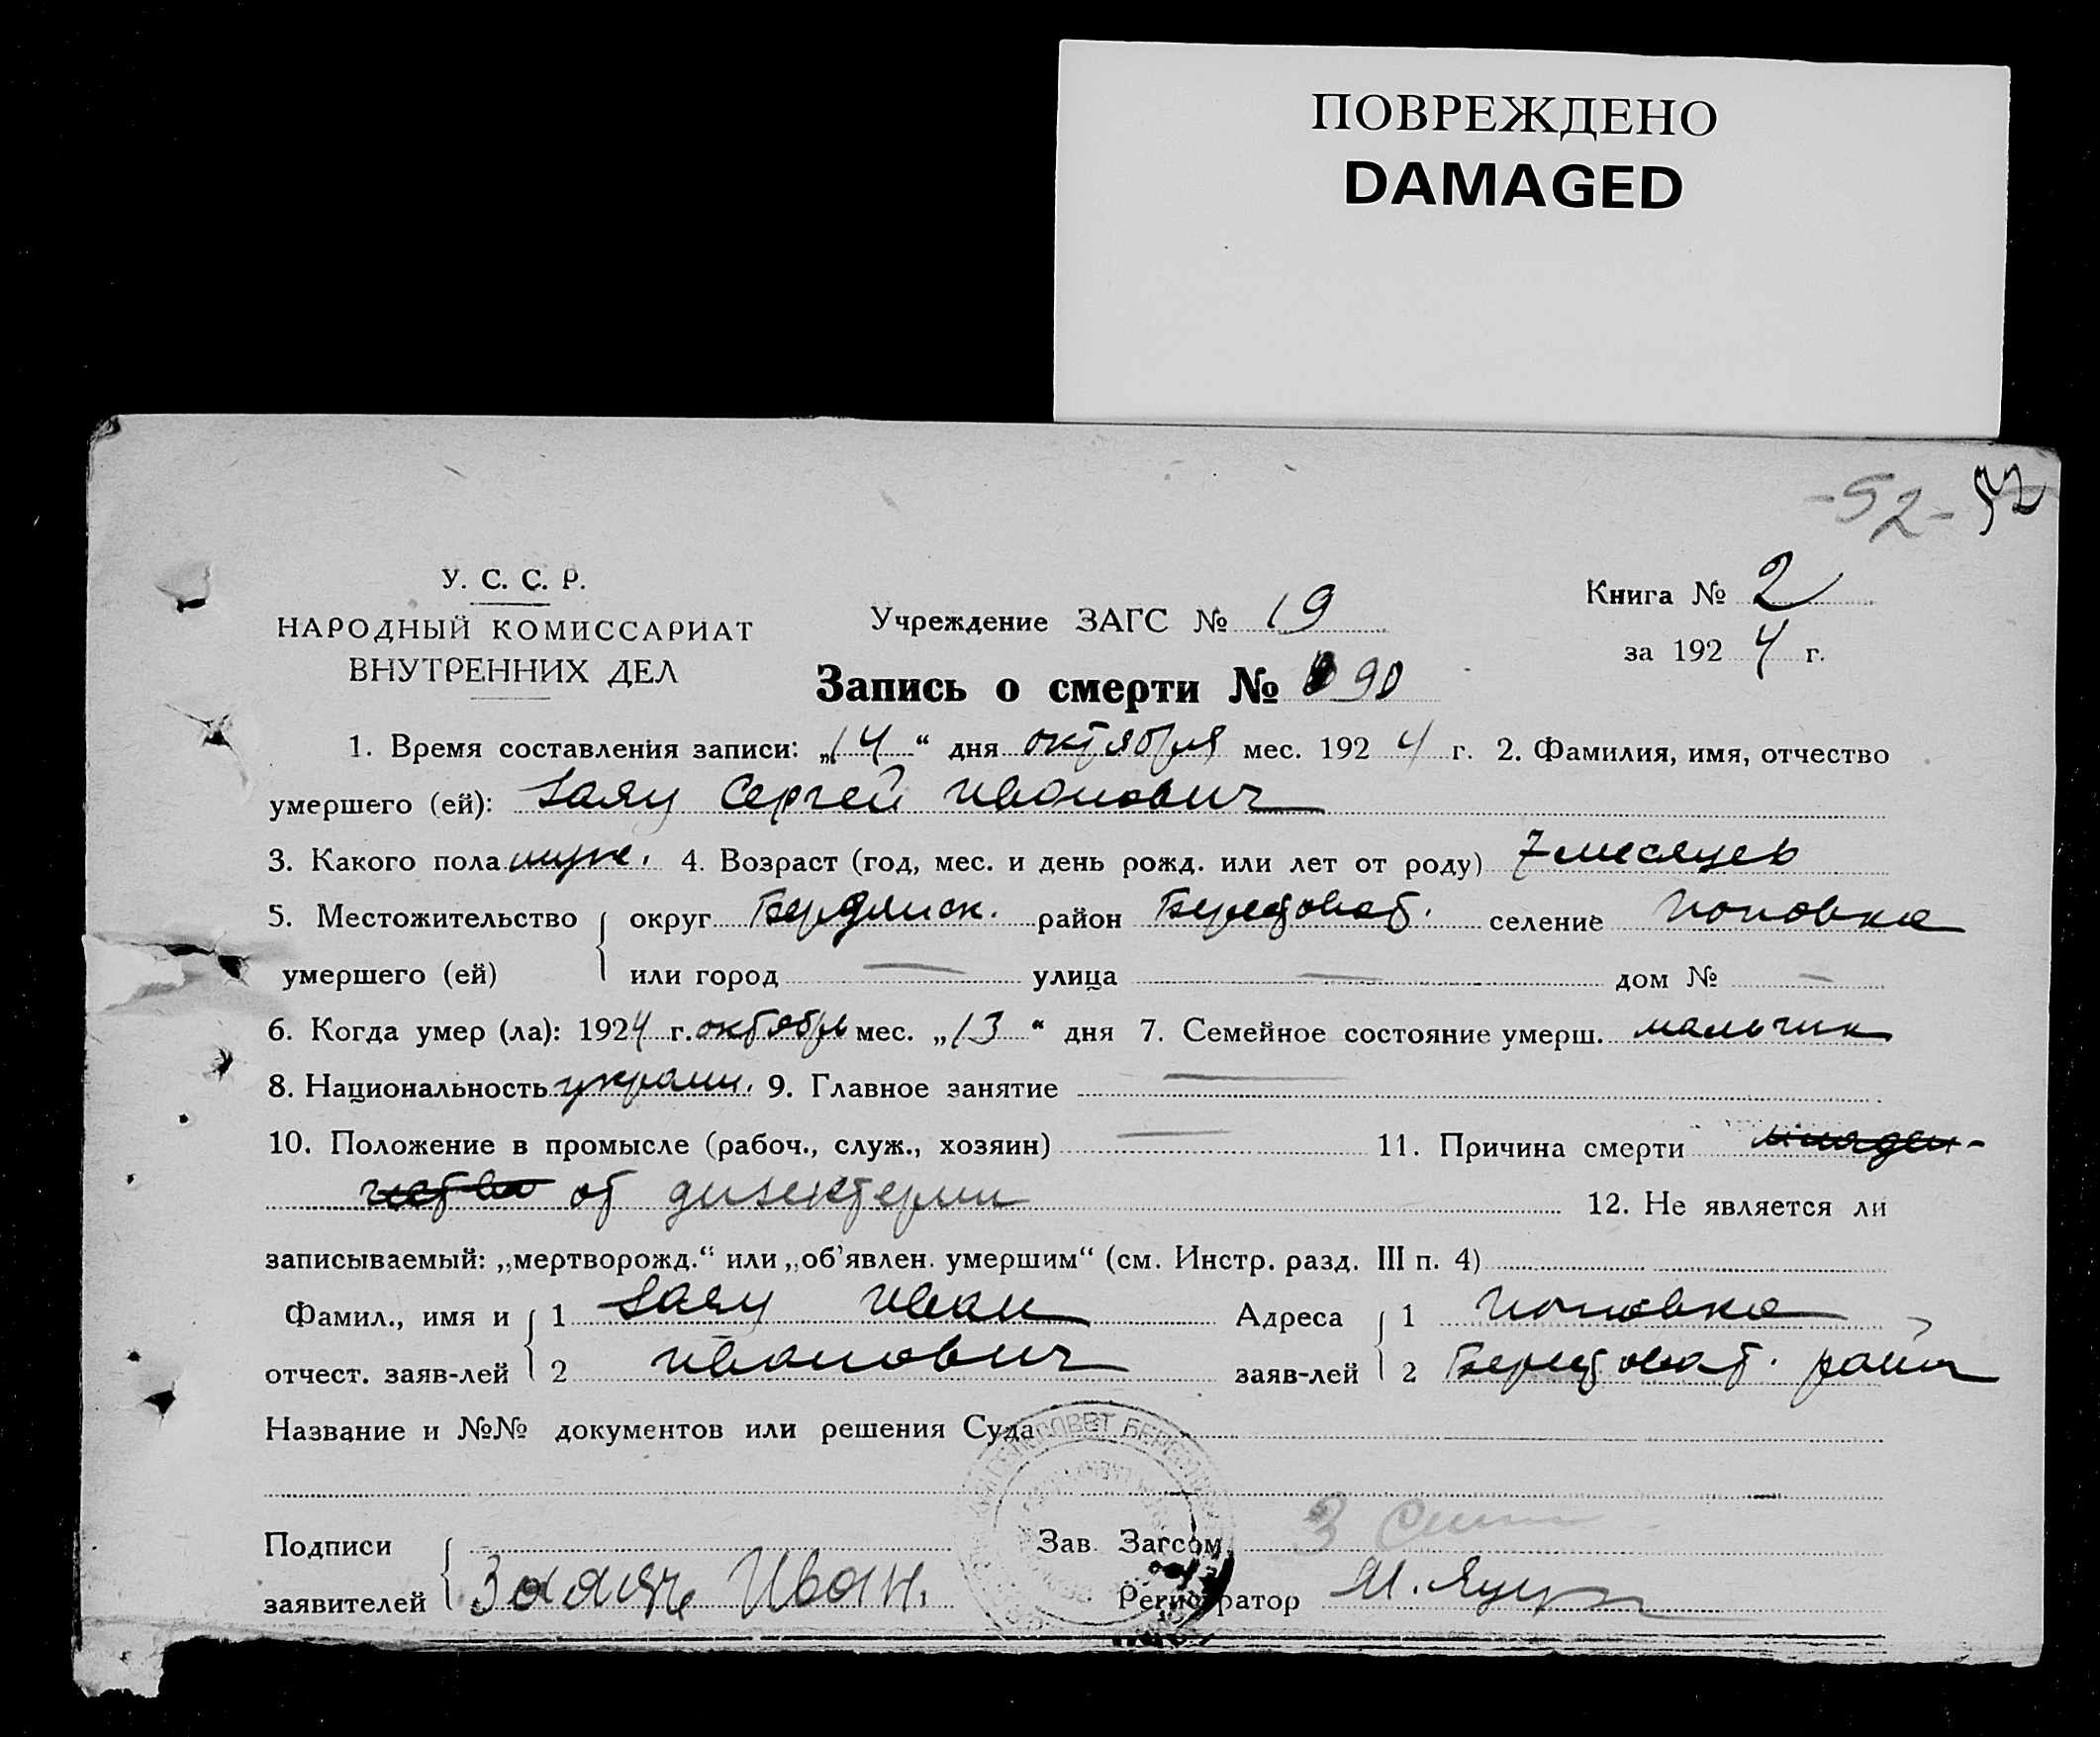 ПОВРЕЖДЕНО
DAMAGED
-52- 52
У. С. С. Р.
НАРОДНЫЙ КОМИССАРИАТ
ВНУТРЕННИХ ДЕЛ
Учреждение ЗАГС № 19
Книга № 2
за 1924 г.
Запись о смерти № 90
1. Время составления записи: „14“ дня октября мес. 1924 г. 2. Фамилия, имя, отчество
умершего (ей): Заяц Сергей Иванович
3. Какого пола муж. 4. Возраст (год, мес. и день рожд. или лет от роду) 7 месяцев
5. Местожительство округ Бердянск. район Берестоват. селение Поповка
умершего (ей) или город — улица — дом № —
6. Когда умер (ла): 1924 г. октябрь мес. „13“ дня 7. Семейное состояние умерш. мальчик
8. Национальность украин. 9. Главное занятие —
10. Положение в промысле (рабоч., служ., хозяин) — 11. Причина смерти младен-
чества от дизентерии 12. Не является ли
записываемый: „мертворожд.“ или „об'явлен. умершим“ (см. Инстр. разд. III п. 4)
Фамил., имя и 1 Заяц Иван Адреса 1 Поповка
отчест. заяв-лей 2 Иванович заяв-лей 2 Берестоват. район
Название и №№ документов или решения Суда
Подписи Зав. Загсом
заявителей Иван. Регистратор